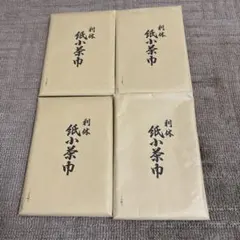 利休
紙小茶巾
利休
紙小茶巾
利休
紙小茶巾
利休
紙小茶巾